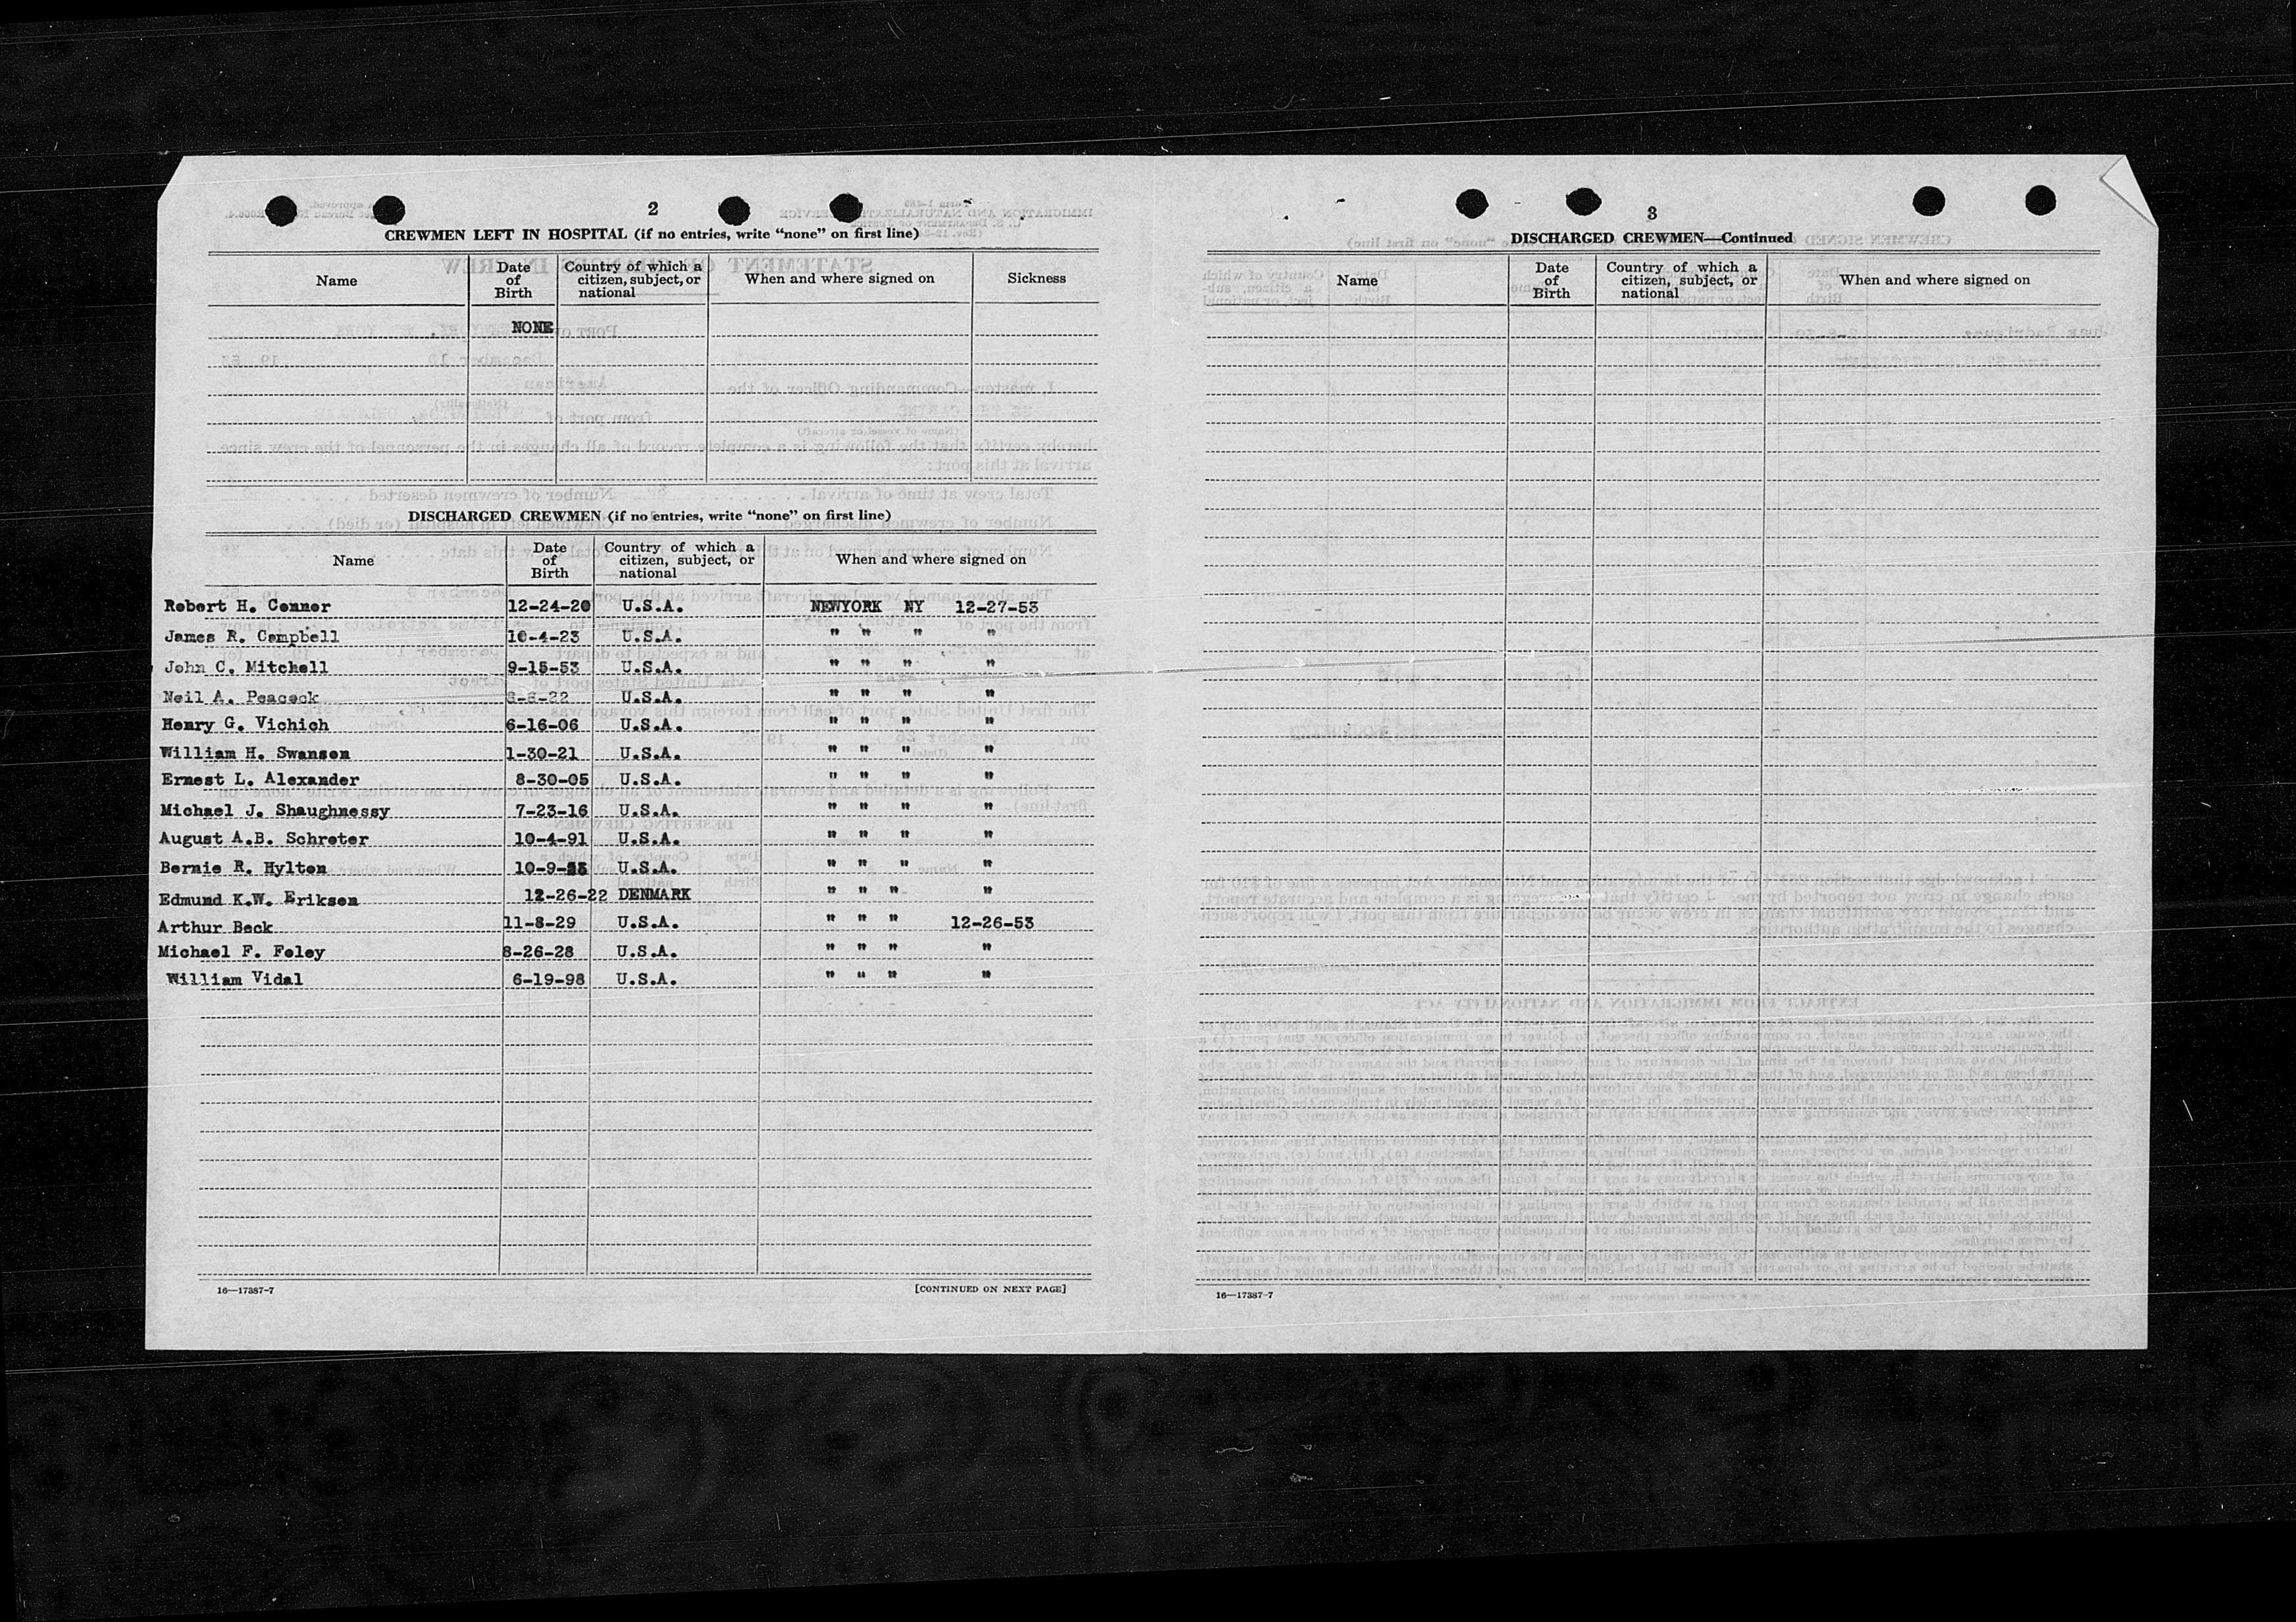 2
CREWMEN LEFT IN HOSPITAL (if no entries, write “none” on first line)
Name
Date of Birth
Country of which a citizen, subject, or national
When and where signed on
Sickness
NONE
DISCHARGED CREWMEN (if no entries, write “none” on first line)
Name
Date of Birth
Country of which a citizen, subject, or national
When and where signed on
Robert H. Connor 12-24-20 U.S.A. NEWYORK NY 12-27-53
James R. Campbell 10-4-23 U.S.A. " " " "
John C. Mitchell 9-15-53 U.S.A. " " " "
Neil A. Peacock 8-8-22 U.S.A. " " " "
Henry G. Vichich 6-16-06 U.S.A. " " " "
William H. Swanson 1-30-21 U.S.A. " " " "
Ernest L. Alexander 8-30-05 U.S.A. " " " "
Michael J. Shaughnessy 7-23-16 U.S.A. " " " "
August A.B. Schroter 10-4-91 U.S.A. " " " "
Bernie R. Hylton 10-9- U.S.A. " " " "
Edmund K.W. Eriksen 12-26-22 DENMARK " " " "
Arthur Beck 11-8-29 U.S.A. " " " 12-26-53
Michael F. Foley 8-26-28 U.S.A. " " " "
William Vidal 6-19-98 U.S.A. " " " "
16—17387-7
[CONTINUED ON NEXT PAGE]
3
DISCHARGED CREWMEN—Continued
Name
Date of Birth
Country of which a citizen, subject, or national
When and where signed on
16—17387-7